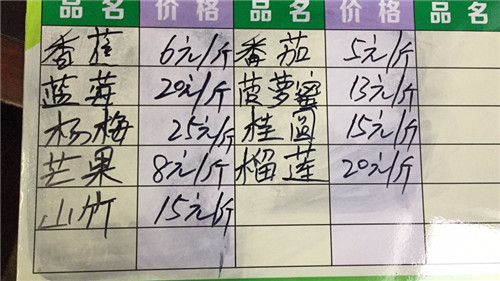 品名 价格 品名 价格 品名
香蕉 6元/斤 番茄 5元/斤
蓝莓 20元/斤 菠萝蜜 13元/斤
杨梅 25元/斤 桂圆 15元/斤
芒果 8元/斤 榴莲 20元/斤
山竹 15元/斤